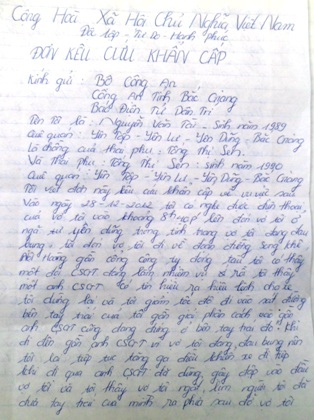 Cộng Hoà Xã Hội Chủ Nghĩa Việt Nam
Độc lập - Tự do - Hạnh phúc
ĐƠN KÊU CỨU KHẨN CẤP
Kính gửi: Bộ Công An
Công An Tỉnh Bắc Giang
Báo Điện Tử Dân Trí
Tên tôi là: Nguyễn Văn - Sinh năm 1989
Quê quán: Yên Tập - Yên Lư - Yên Dũng - Bắc Giang
Là chồng của thai phụ: Tống Thị Sen.
Và Thai phụ: Tống Thị Sen: sinh năm 1990
Quê quán: Yên Tập - Yên Lư - Yên Dũng - Bắc Giang
Tôi viết đơn này kêu cứu khẩn cấp về vụ việc sau
Vào ngày 28-12-2012 tôi có nghe được điện thoại
của vợ tôi vào khoảng tôi đón vợ tôi ở
ngã tư yên dũng trong tình trạng vợ tôi đang đau
bụng. tôi đón vợ tôi đi về đoạn đường song khê
gần cổng công ty tôi có thấy
một đội CSGT đang làm nhiệm vụ và tôi thấy
một anh CSGT ra hiệu cho xe
tôi dừng lại và tôi giảm tốc độ đi vào sát đường
bên tay trái của tôi gần giải phân cách và gần
anh CSGT cũng đang đứng ở bên tay trái đó khi
đi đến gần anh CSGT vì vợ tôi đang đau bụng nên
tôi lại tiếp tục tăng ga điều khiển xe đi tiếp
khi đi qua anh CSGT đó dùng gậy đập vào đầu
vợ tôi và tôi thấy vợ tôi người tôi đã
đưa tay trái của mình ra phía sau đỡ vợ tôi